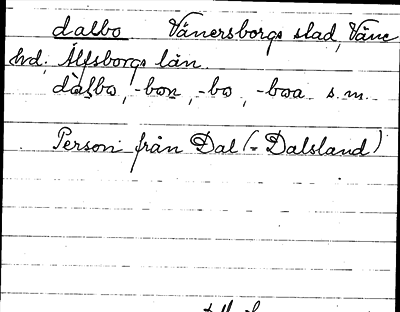 dalbo Vänersborgs stad, Väne
hd. Älfsborgs län.
dàlbo, -bon, -bo, -boa s.m.
Person från Dal (= Dalsland)